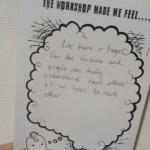 THE WORKSHOP MADE ME FEEL....
like there is hope
for the future and
people can truly
understand each other
if we listen to each
other.